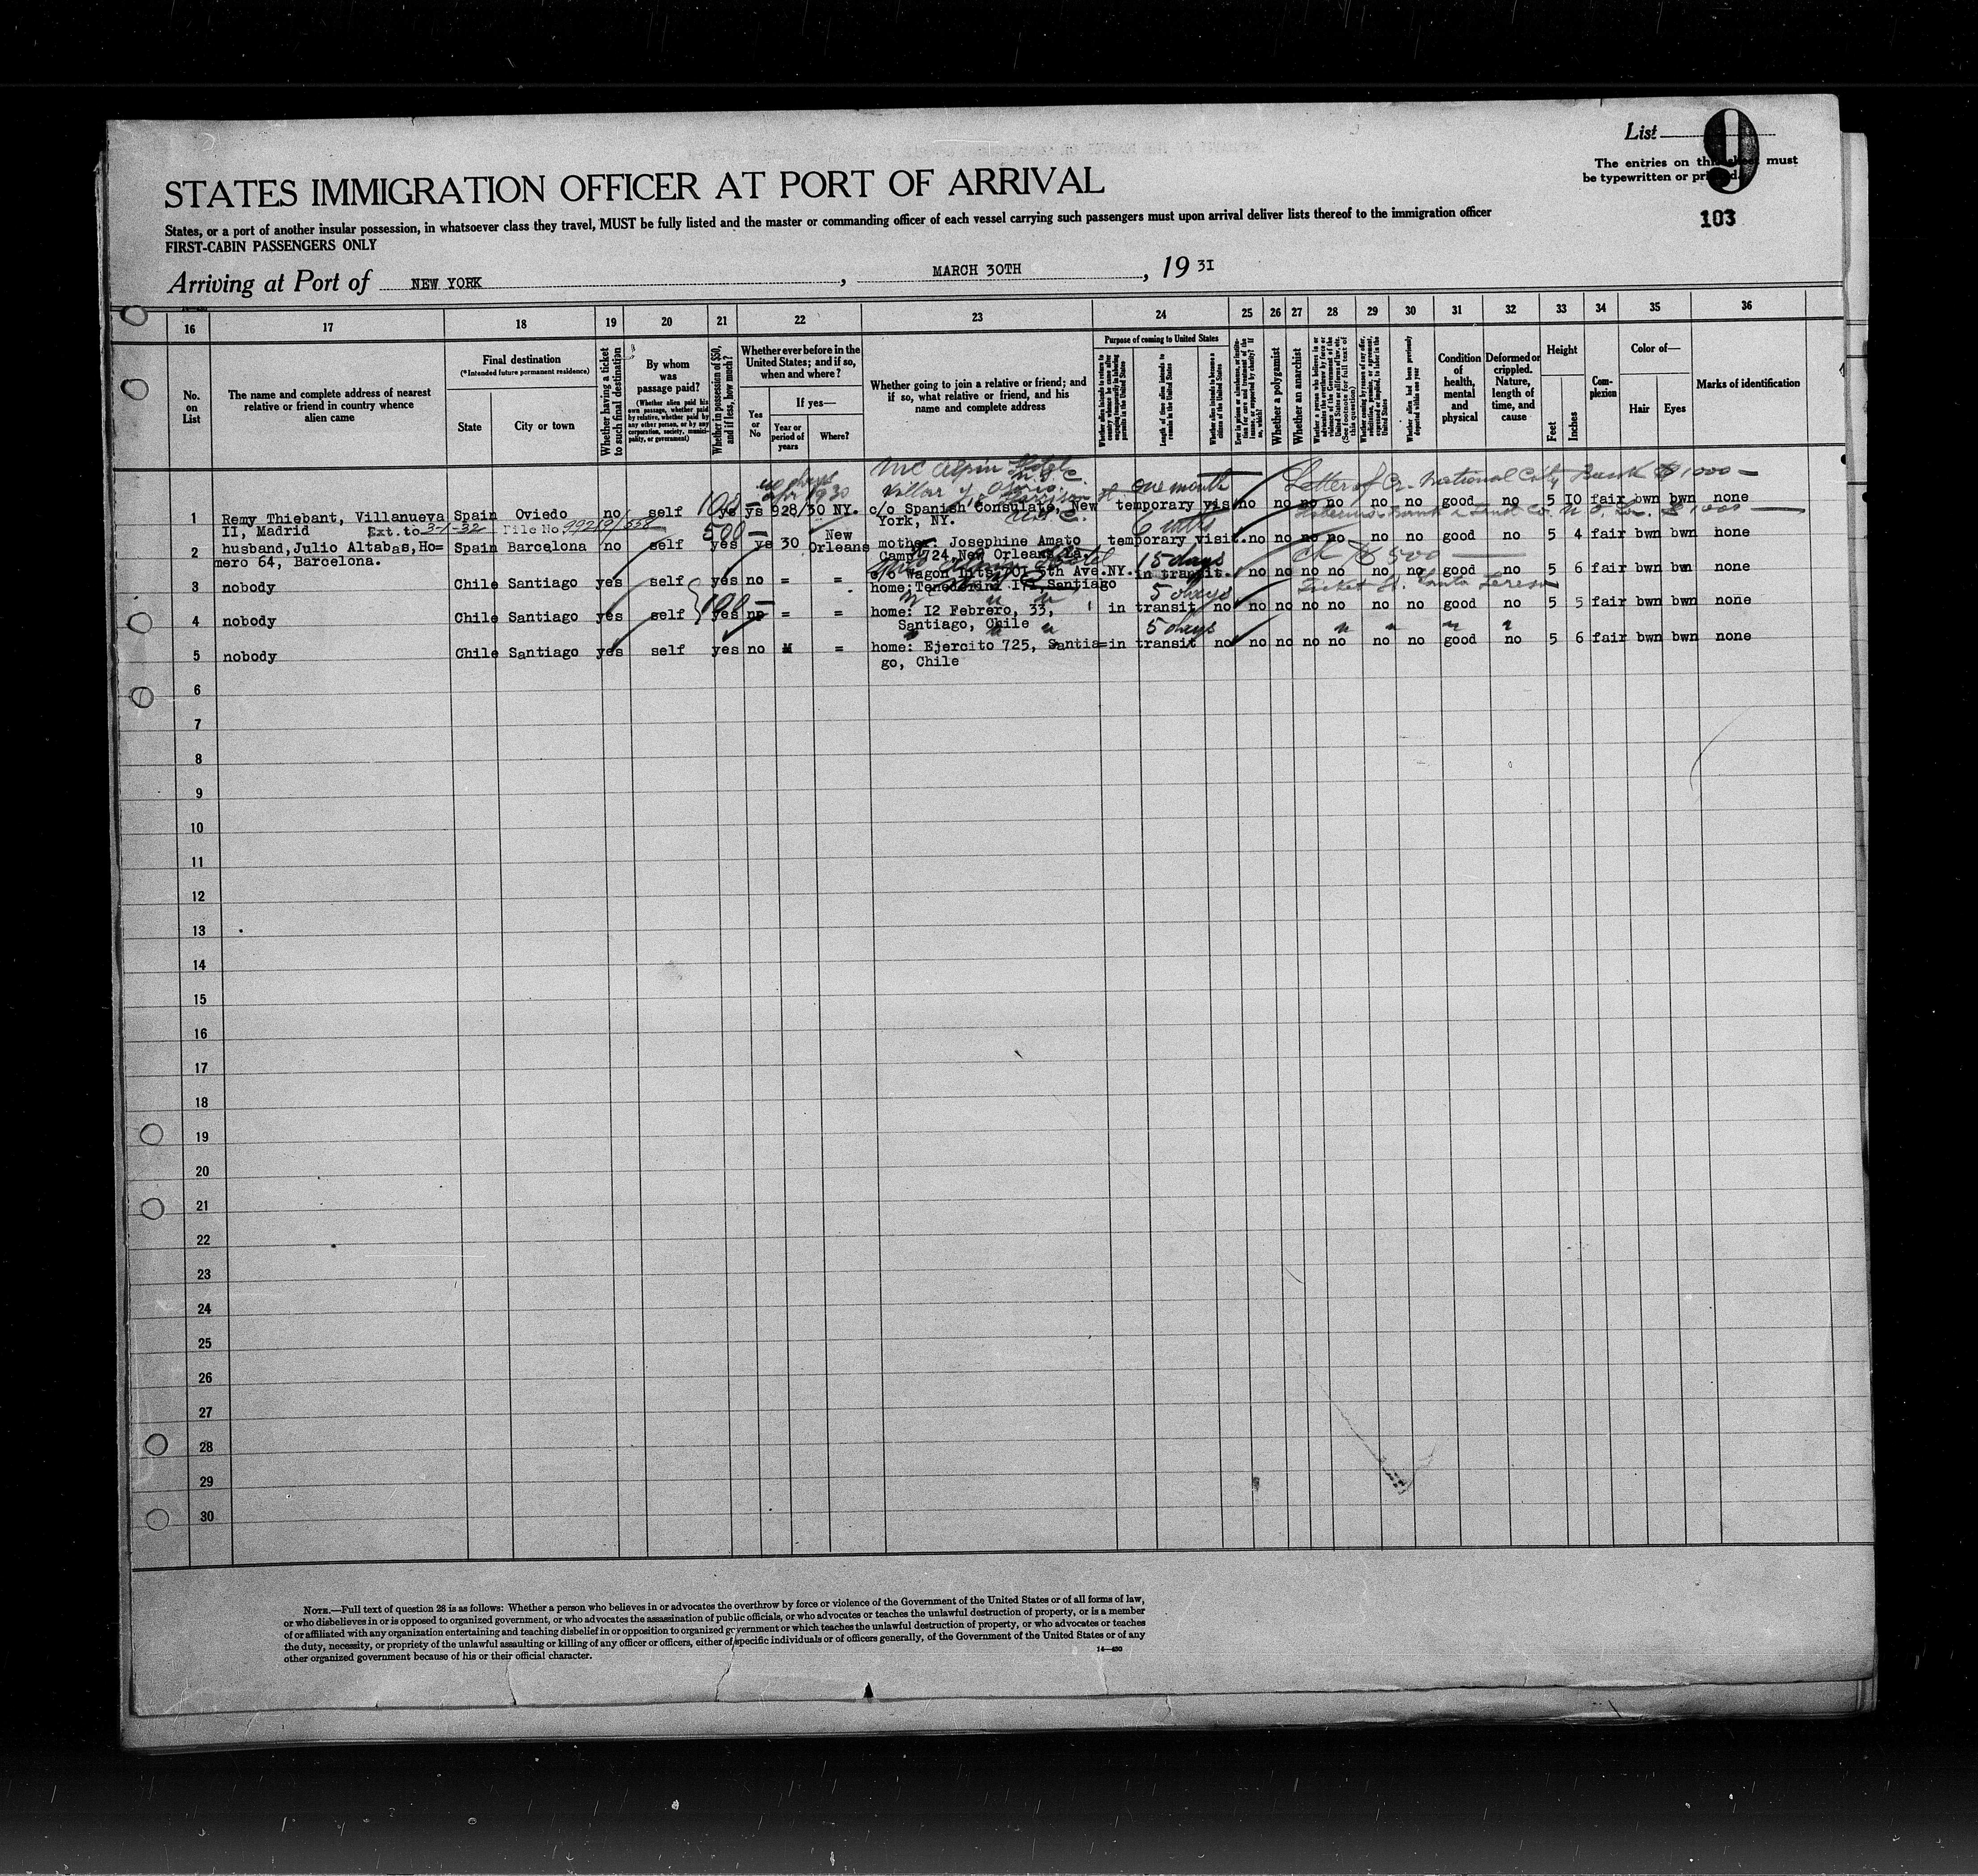 List
9
The entries on this sheet must
be typewritten or printed.
103
STATES IMMIGRATION OFFICER AT PORT OF ARRIVAL
States, or a port of another insular possession, in whatsoever class they travel, MUST be fully listed and the master or commanding officer of each vessel carrying such passengers must upon arrival deliver lists thereof to the immigration officer
FIRST-CABIN PASSENGERS ONLY
Arriving at Port of NEW YORK, MARCH 30TH, 19 31
16 17 18 19 20 21 22 23 24 25 26 27 28 29 30 31 32 33 34 35 36
No. on List
The name and complete address of nearest
relative or friend in country whence
alien came
Final destination
(*Intended future permanent residence)
State
City or town
Whether having a ticket
to such final destination
By whom
was
passage paid?
(Whether alien paid his
own passage, whether paid
by relative, whether paid by
any other person, or by any
corporation, society, munici-
pality, or government)
Whether in possession of $50,
and if less, how much?
Whether ever before in the
United States; and if so,
when and where?
Yes
or
No
If yes—
Year or
period of
years
Where?
Whether going to join a relative or friend; and
if so, what relative or friend, and his
name and complete address
Purpose of coming to United States
Length of time alien intends to
remain in the United States
Whether alien intends to become a
citizen of the United States
Whether a polygamist
Whether an anarchist
Whether alien has been previously
deported within one year
Condition
of
health,
mental
and
physical
Deformed or
crippled.
Nature,
length of
time, and
cause
Height
Feet
Inches
Com-
plexion
Color of—
Hair
Eyes
Marks of identification
Mc Alpin Hotel
N.Y.C.
one month
Letter of Cr. National City Bank $1000—
100—
1 Remy Thiebant, Villanueva Spain Oviedo no self yes ys 928/30 NY. c/o Spanish Consulate, New temporary vis no no no no no no no good no 5 10 fair bwn bwn none
II, Madrid Ext. to 3-1-32 File No. 992/9/558 York, NY.
500— 6 mths
2 husband, Julio Altabas, Ho= Spain Barcelona no self yes ys 30 New Orleans mother: Josephine Amato temporary visit. no no no no no no no good no 5 4 fair bwn bwn none
mero 64, Barcelona. Camp 724, New Orleans La.
15 days
Ck $500
3 nobody Chile Santiago yes self yes no = = c/o Wagon Lits, 701 5th Ave. NY. in transit. no no no no no no no good no 5 6 fair bwn bwn none
Santiago
5 days
100—
4 nobody Chile Santiago yes self yes no = = home: I2 Febrero, 33, in transit no no no no no no no no good no 5 5 fair bwn bwn none
Santiago, Chile
5 days
5 nobody Chile Santiago yes self yes no = home: Ejercito 725, Santia= in transit no no no no no no no no good no 5 6 fair bwn bwn none
go, Chile
6
7
8
9
10
11
12
13
14
15
16
17
18
19
20
21
22
23
24
25
26
27
28
29
30
NOTE.—Full text of question 28 is as follows: Whether a person who believes in or advocates the overthrow by force or violence of the Government of the United States or of all forms of law,
or who disbelieves in or is opposed to organized government, or who advocates the assassination of public officials, or who advocates or teaches the unlawful destruction of property, or is a member
of or affiliated with any organization entertaining and teaching disbelief in or opposition to organized government or which teaches the unlawful destruction of property, or who advocates or teaches
the duty, necessity, or propriety of the unlawful assaulting or killing of any officer or officers, either of specific individuals or of officers generally, of the Government of the United States or of any
other organized government because of his or their official character.
14—430